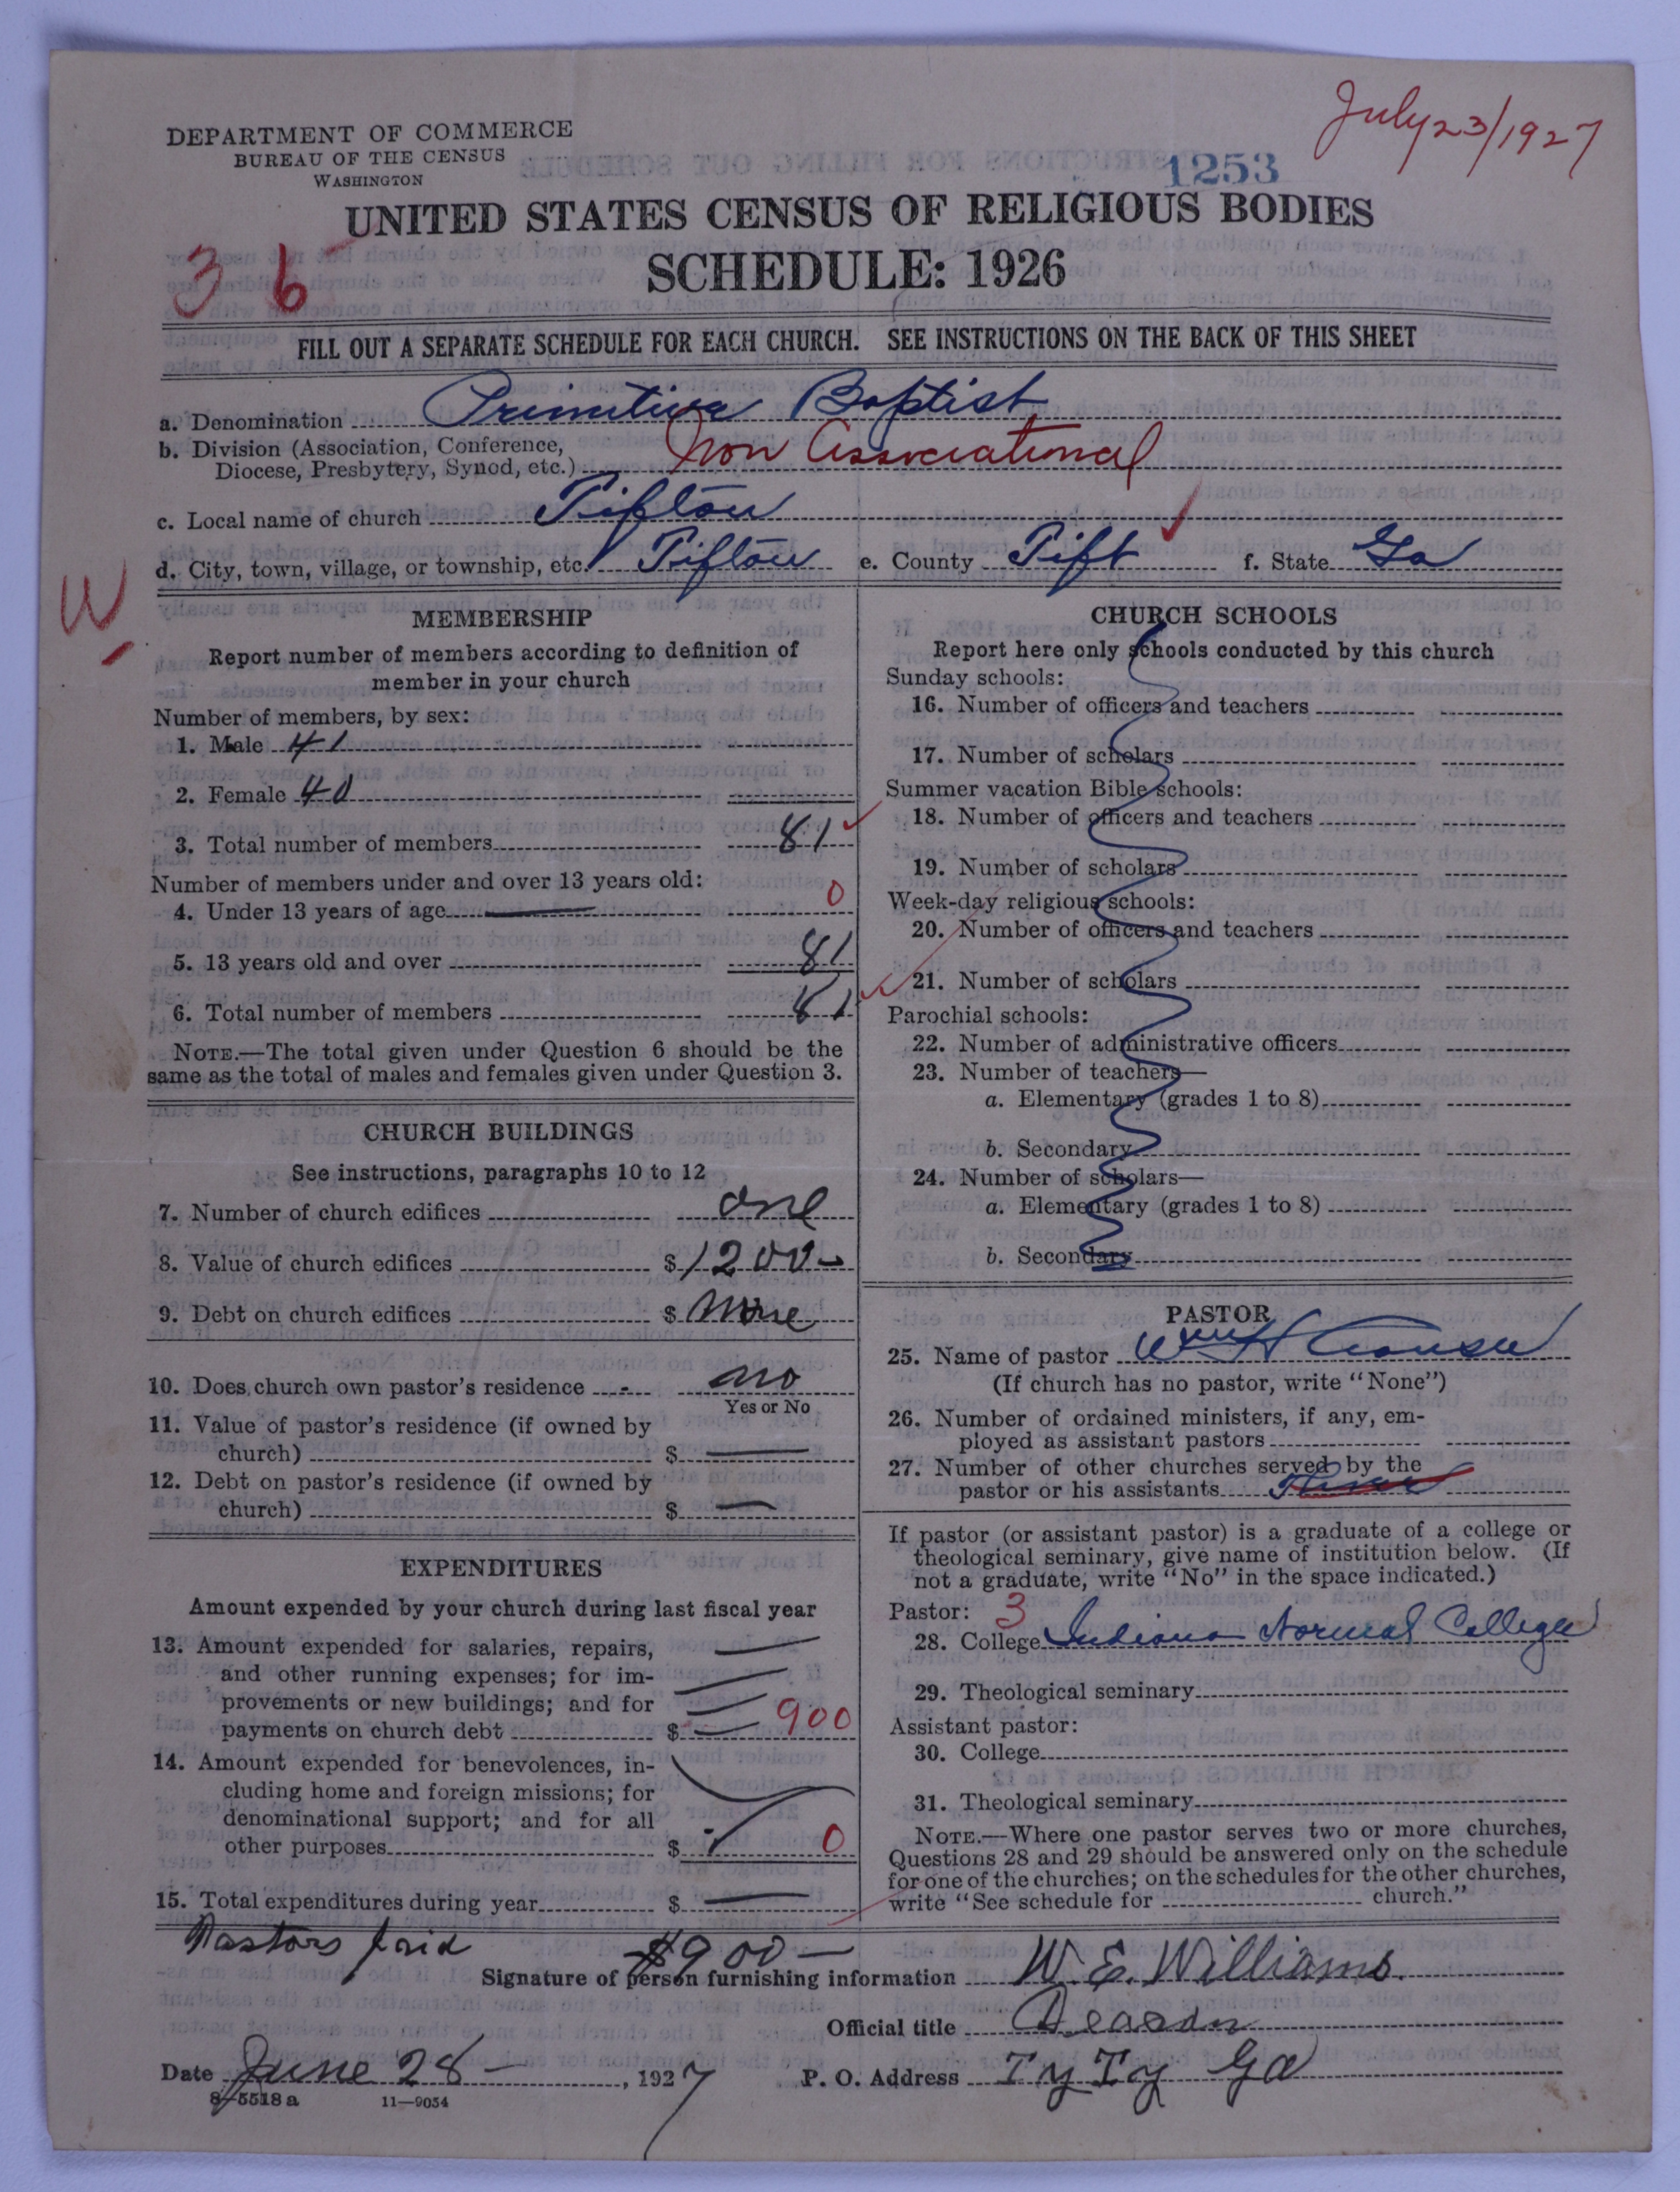 July 23/1927
DEPARTMENT OF COMMERCE
BUREAU OF THE CENSUS
WASHINGTON
1253
UNITED STATES CENSUS OF RELIGIOUS BODIES
SCHEDULE: 1926
36
FILL OUT A SEPARATE SCHEDULE FOR EACH CHURCH. SEE INSTRUCTIONS ON THE BACK OF THIS SHEET
a. Denomination Primitive Baptist
b. Division (Association, Conference,
Diocese, Presbytery, Synod, etc.) Non Associational
c. Local name of church Tifton
d. City, town, village, or township, etc. Tifton e. County Tift f. State Ga
W
MEMBERSHIP
Report number of members according to definition of
member in your church
Number of members, by sex:
1. Male 41
2. Female 40
3. Total number of members 81
Number of members under and over 13 years old:
4. Under 13 years of age — 0
5. 13 years old and over 81
6. Total number of members 81
NOTE.—The total given under Question 6 should be the
same as the total of males and females given under Question 3.
CHURCH BUILDINGS
See instructions, paragraphs 10 to 12
7. Number of church edifices one
8. Value of church edifices $ 1200-
9. Debt on church edifices $ None
10. Does church own pastor's residence no
Yes or No
11. Value of pastor's residence (if owned by
church) $ —
12. Debt on pastor's residence (if owned by
church) $ —
EXPENDITURES
Amount expended by your church during last fiscal year
13. Amount expended for salaries, repairs,
and other running expenses; for im-
provements or new buildings; and for
payments on church debt $ — 900
14. Amount expended for benevolences, in-
cluding home and foreign missions; for
denominational support; and for all
other purposes $ 0
15. Total expenditures during year $ —
CHURCH SCHOOLS
Report here only schools conducted by this church
Sunday schools:
16. Number of officers and teachers
17. Number of scholars
Summer vacation Bible schools:
18. Number of officers and teachers
19. Number of scholars
Week-day religious schools:
20. Number of officers and teachers
21. Number of scholars
Parochial schools:
22. Number of administrative officers
23. Number of teachers—
a. Elementary (grades 1 to 8)
b. Secondary
24. Number of scholars—
a. Elementary (grades 1 to 8)
b. Secondary
PASTOR
25. Name of pastor Wm H
(If church has no pastor, write "None")
26. Number of ordained ministers, if any, em-
ployed as assistant pastors
27. Number of other churches served by the
pastor or his assistants
If pastor (or assistant pastor) is a graduate of a college or
theological seminary, give name of institution below. (If
not a graduate, write "No" in the space indicated.)
Pastor: 3
28. College Indiana Normal College
29. Theological seminary
Assistant pastor:
30. College
31. Theological seminary
NOTE.—Where one pastor serves two or more churches,
Questions 28 and 29 should be answered only on the schedule
for one of the churches; on the schedules for the other churches,
write "See schedule for church."
Pastors paid $900—
Signature of person furnishing information W. E. Williams
Official title Deacon
Date June 28-, 1927 P. O. Address Ty Ty Ga
8-5518 a 11-9054